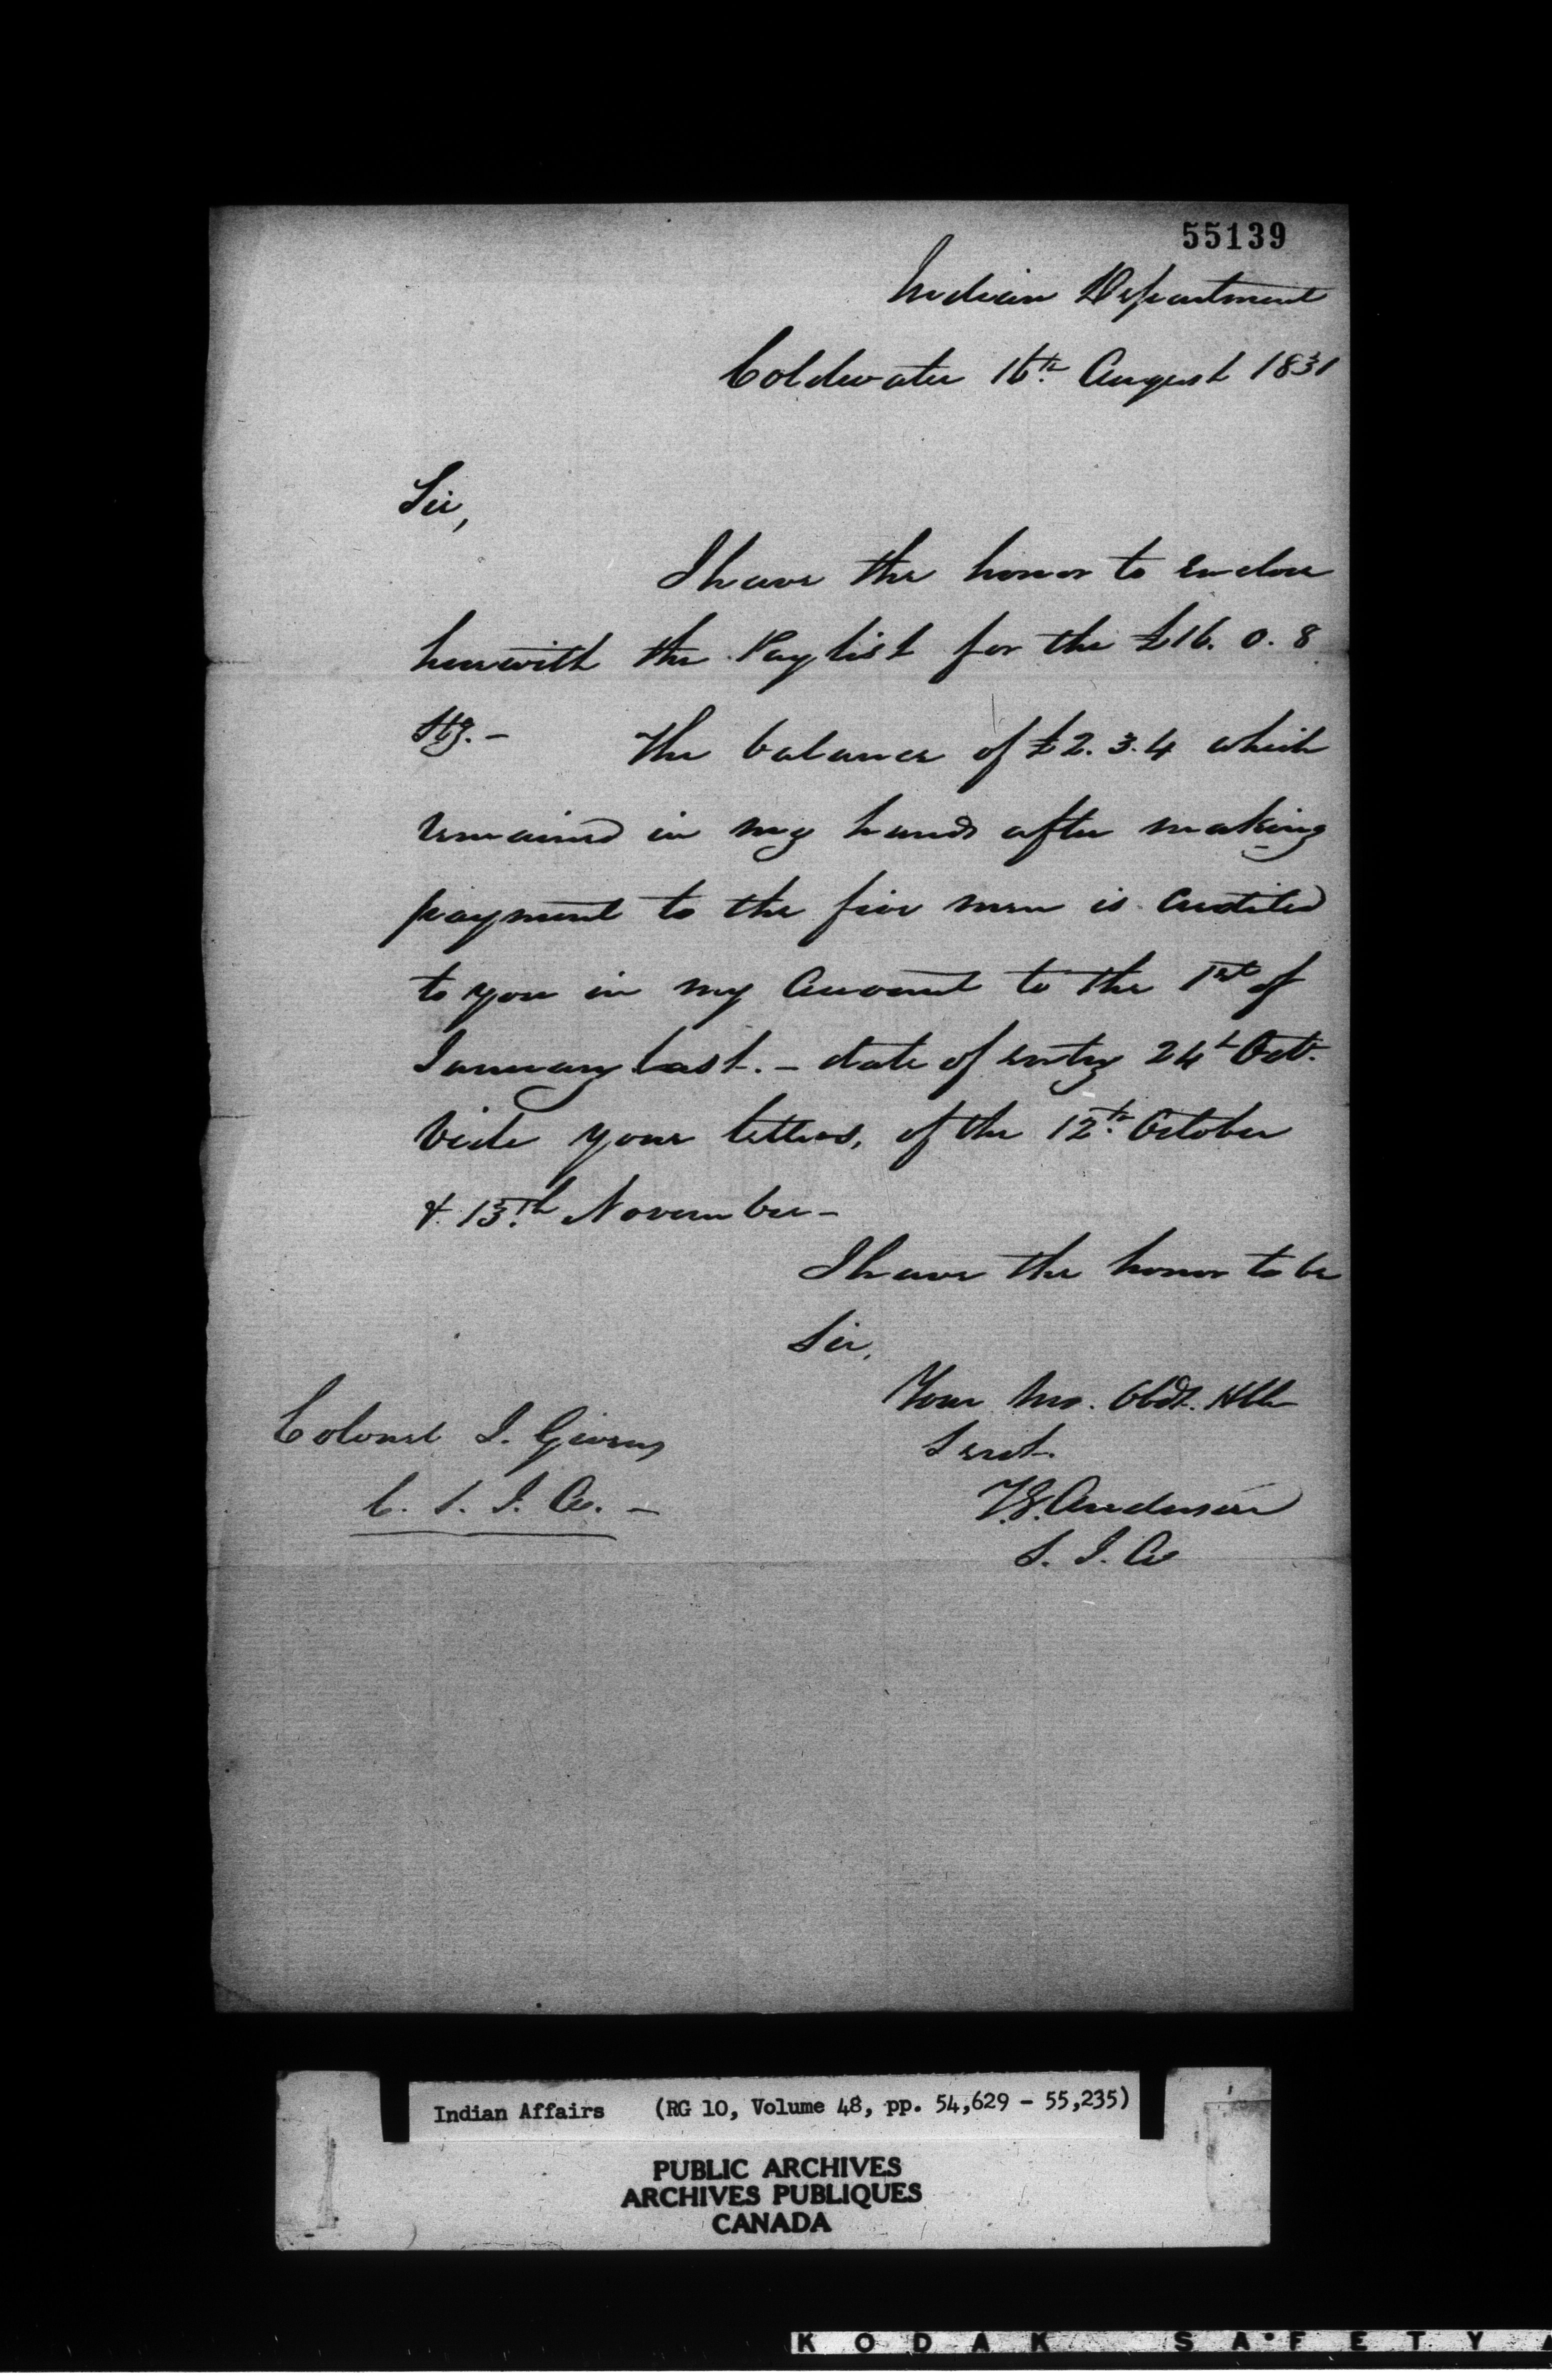 55139
Indian Department
Coldwater 16th. August 1831
Sir,
I have the honor to enclose
herewith the Paylist for the £16. 0. 8
Stg. – The balance of £2. 3. 4 which
remained in my hands after making
payment to the five men is credited
to you in my Account to the 1st of
January last. – date of entry 24th Octr.
Vide your letters, of the 12th. October
& 13th. November –
I have the honor to be
Sir,
Your Mo. Obdt. Hble
Servt.
T.G. Anderson
S. I. A
Colonel J. Givens
C. S. I. A. –
Indian Affairs (RG 10, Volume 48, pp. 54,629 - 55,235)
PUBLIC ARCHIVES
ARCHIVES PUBLIQUES
CANADA
KODAK SAFETY